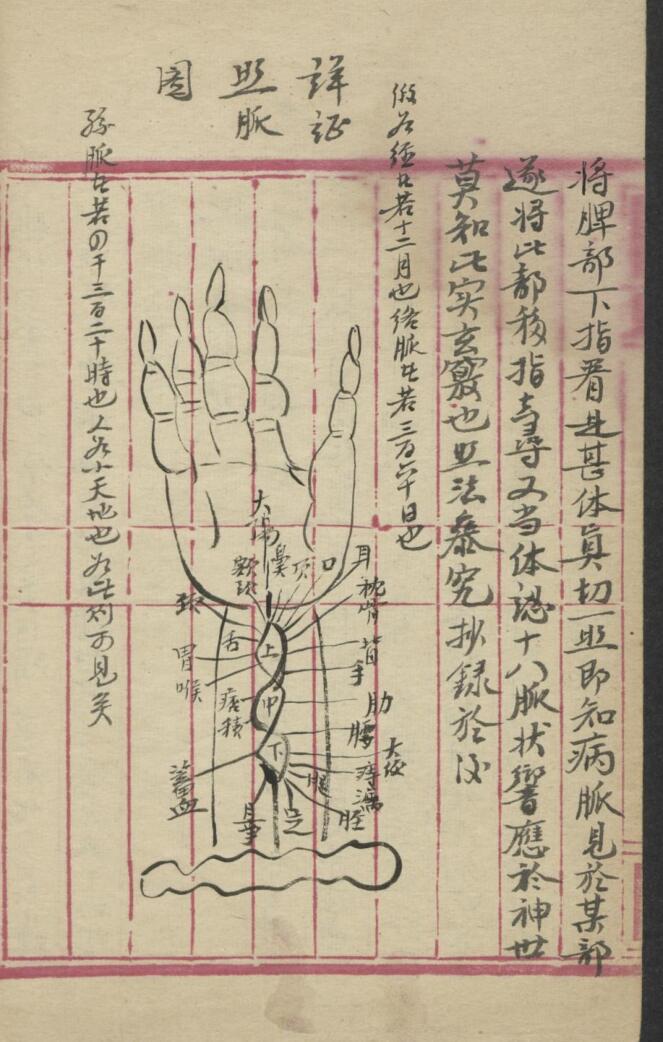 将脾部下指看是甚体真切一照即知病脈見於某部
遂将此部移指尋又当体認十八脈状響應於神世
莫知此实玄竅也照法叅究抄錄於後
假如經比若十二月也络脈比若三百六十日也
詳証
照脈
圖
孫脈比若四千三百二十時也人如小天地也如此则可見矣
大腸
鼻
項
口
耳
枕骨
背
手
肋
腰
大便
痔漏
腿
胫
足
月事
蓄血
痞積
胃
喉
舌
上
中
下